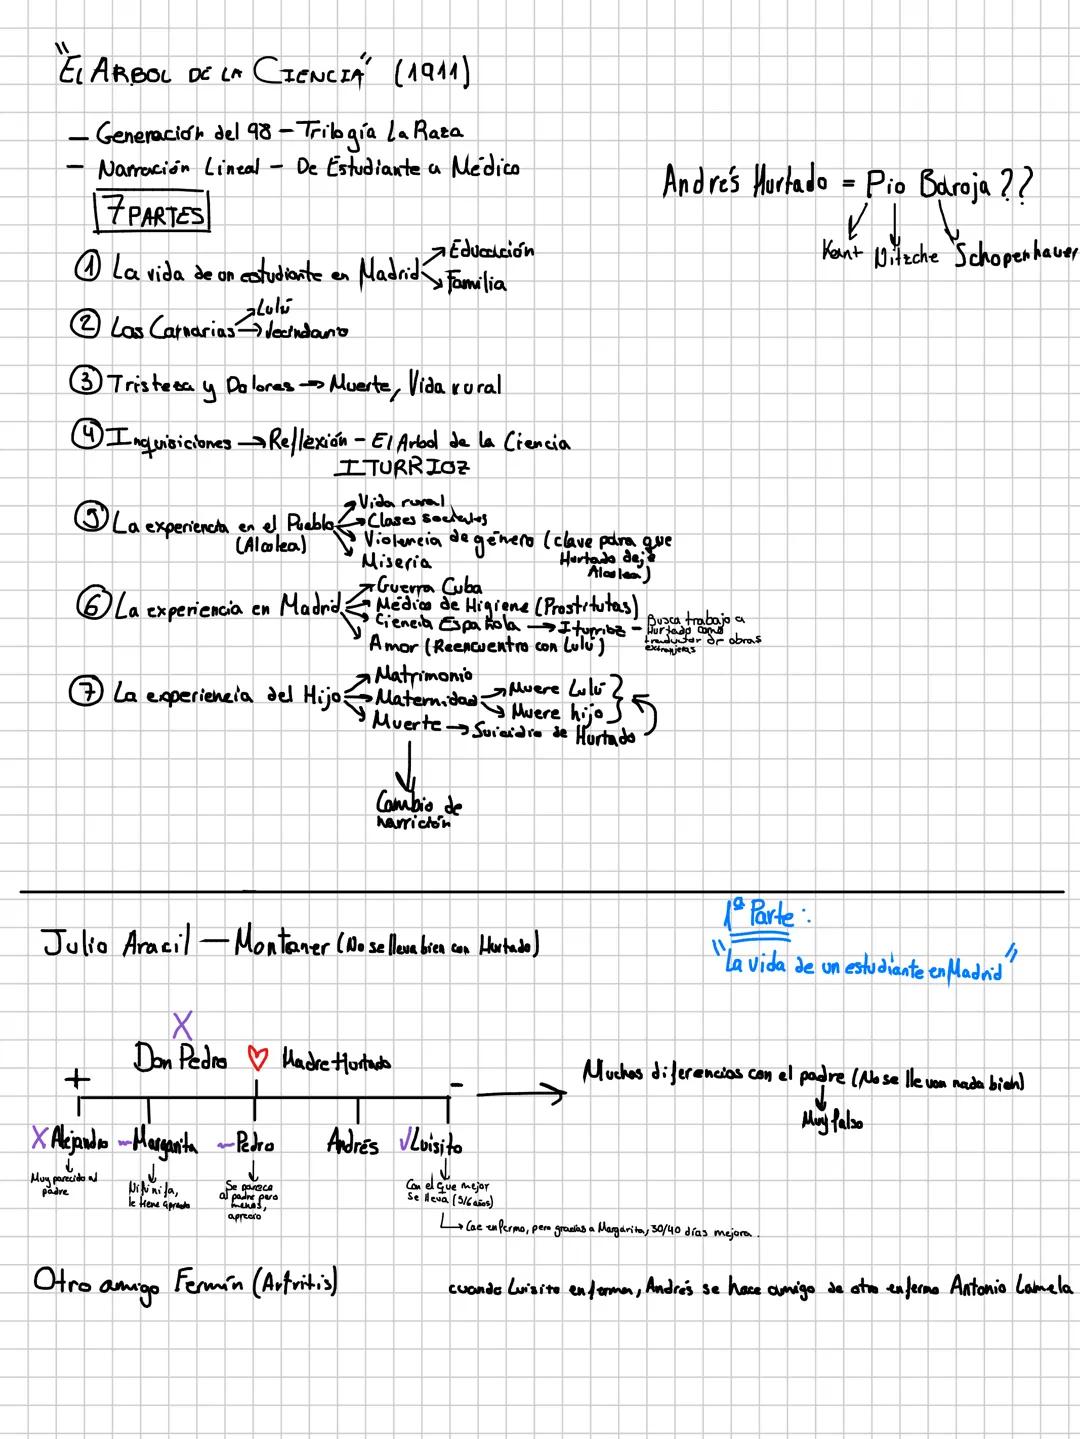 "El Arbol de la Ciencia" (1911)
— Generación del 98 – Trilogía La Raza
— Narración Lineal – De Estudiante a Médico
Andrés Hurtado = Pio Baroja??
Kant Nitzche Schopenhauer
7 PARTES
① La vida de un estudiante en Madrid → Educación
→ Familia
② Las Carnarias → Lulú
→ Vecindario
③ Tristeza y Dolores → Muerte, Vida rural
④ Inquisiciones → Reflexión – El Arbol de la Ciencia
ITURRIOZ
⑤ La experiencia en el Pueblo (Alcolea)
→ Vida rural
→ Clases sociales
→ Violencia de género (clave para que Hurtado deje Alcolea)
→ Miseria
⑥ La experiencia en Madrid
→ Guerra Cuba
→ Médico de Higiene (Prostitutas)
→ Ciencia Española → Iturrioz – Busca trabajo a Hurtado como traductor de obras extranjeras
→ Amor (Reencuentro con Lulú)
⑦ La experiencia del Hijo
→ Matrimonio
→ Maternidad → Muere Lulú
→ Muere hijo
→ Muerte → Suicidio de Hurtado
Cambio de
narrición
1ª Parte:
"La vida de un estudiante en Madrid"
Julio Aracil — Montaner (No se lleva bien con Hurtado)
X
Don Pedro ♡ Madre Hurtado
+ -
→ Muchas diferencias con el padre (No se llevan nada bien)
Muy falso
X Alejandro ~ Margarita ~ Pedro Andrés √ Luisito
Muy parecido al
padre
Ni fu ni fa,
le tiene aprecio
Se parece
al padre pero
menos,
aprecio
Con el que mejor
se lleva (5/6 años)
→ Cae enfermo, pero gracias a Margarita, 30/40 días mejora.
Otro amigo Fermín (Artritis)
cuando Luisito enferma, Andrés se hace amigo de otro enfermo Antonio Lamela